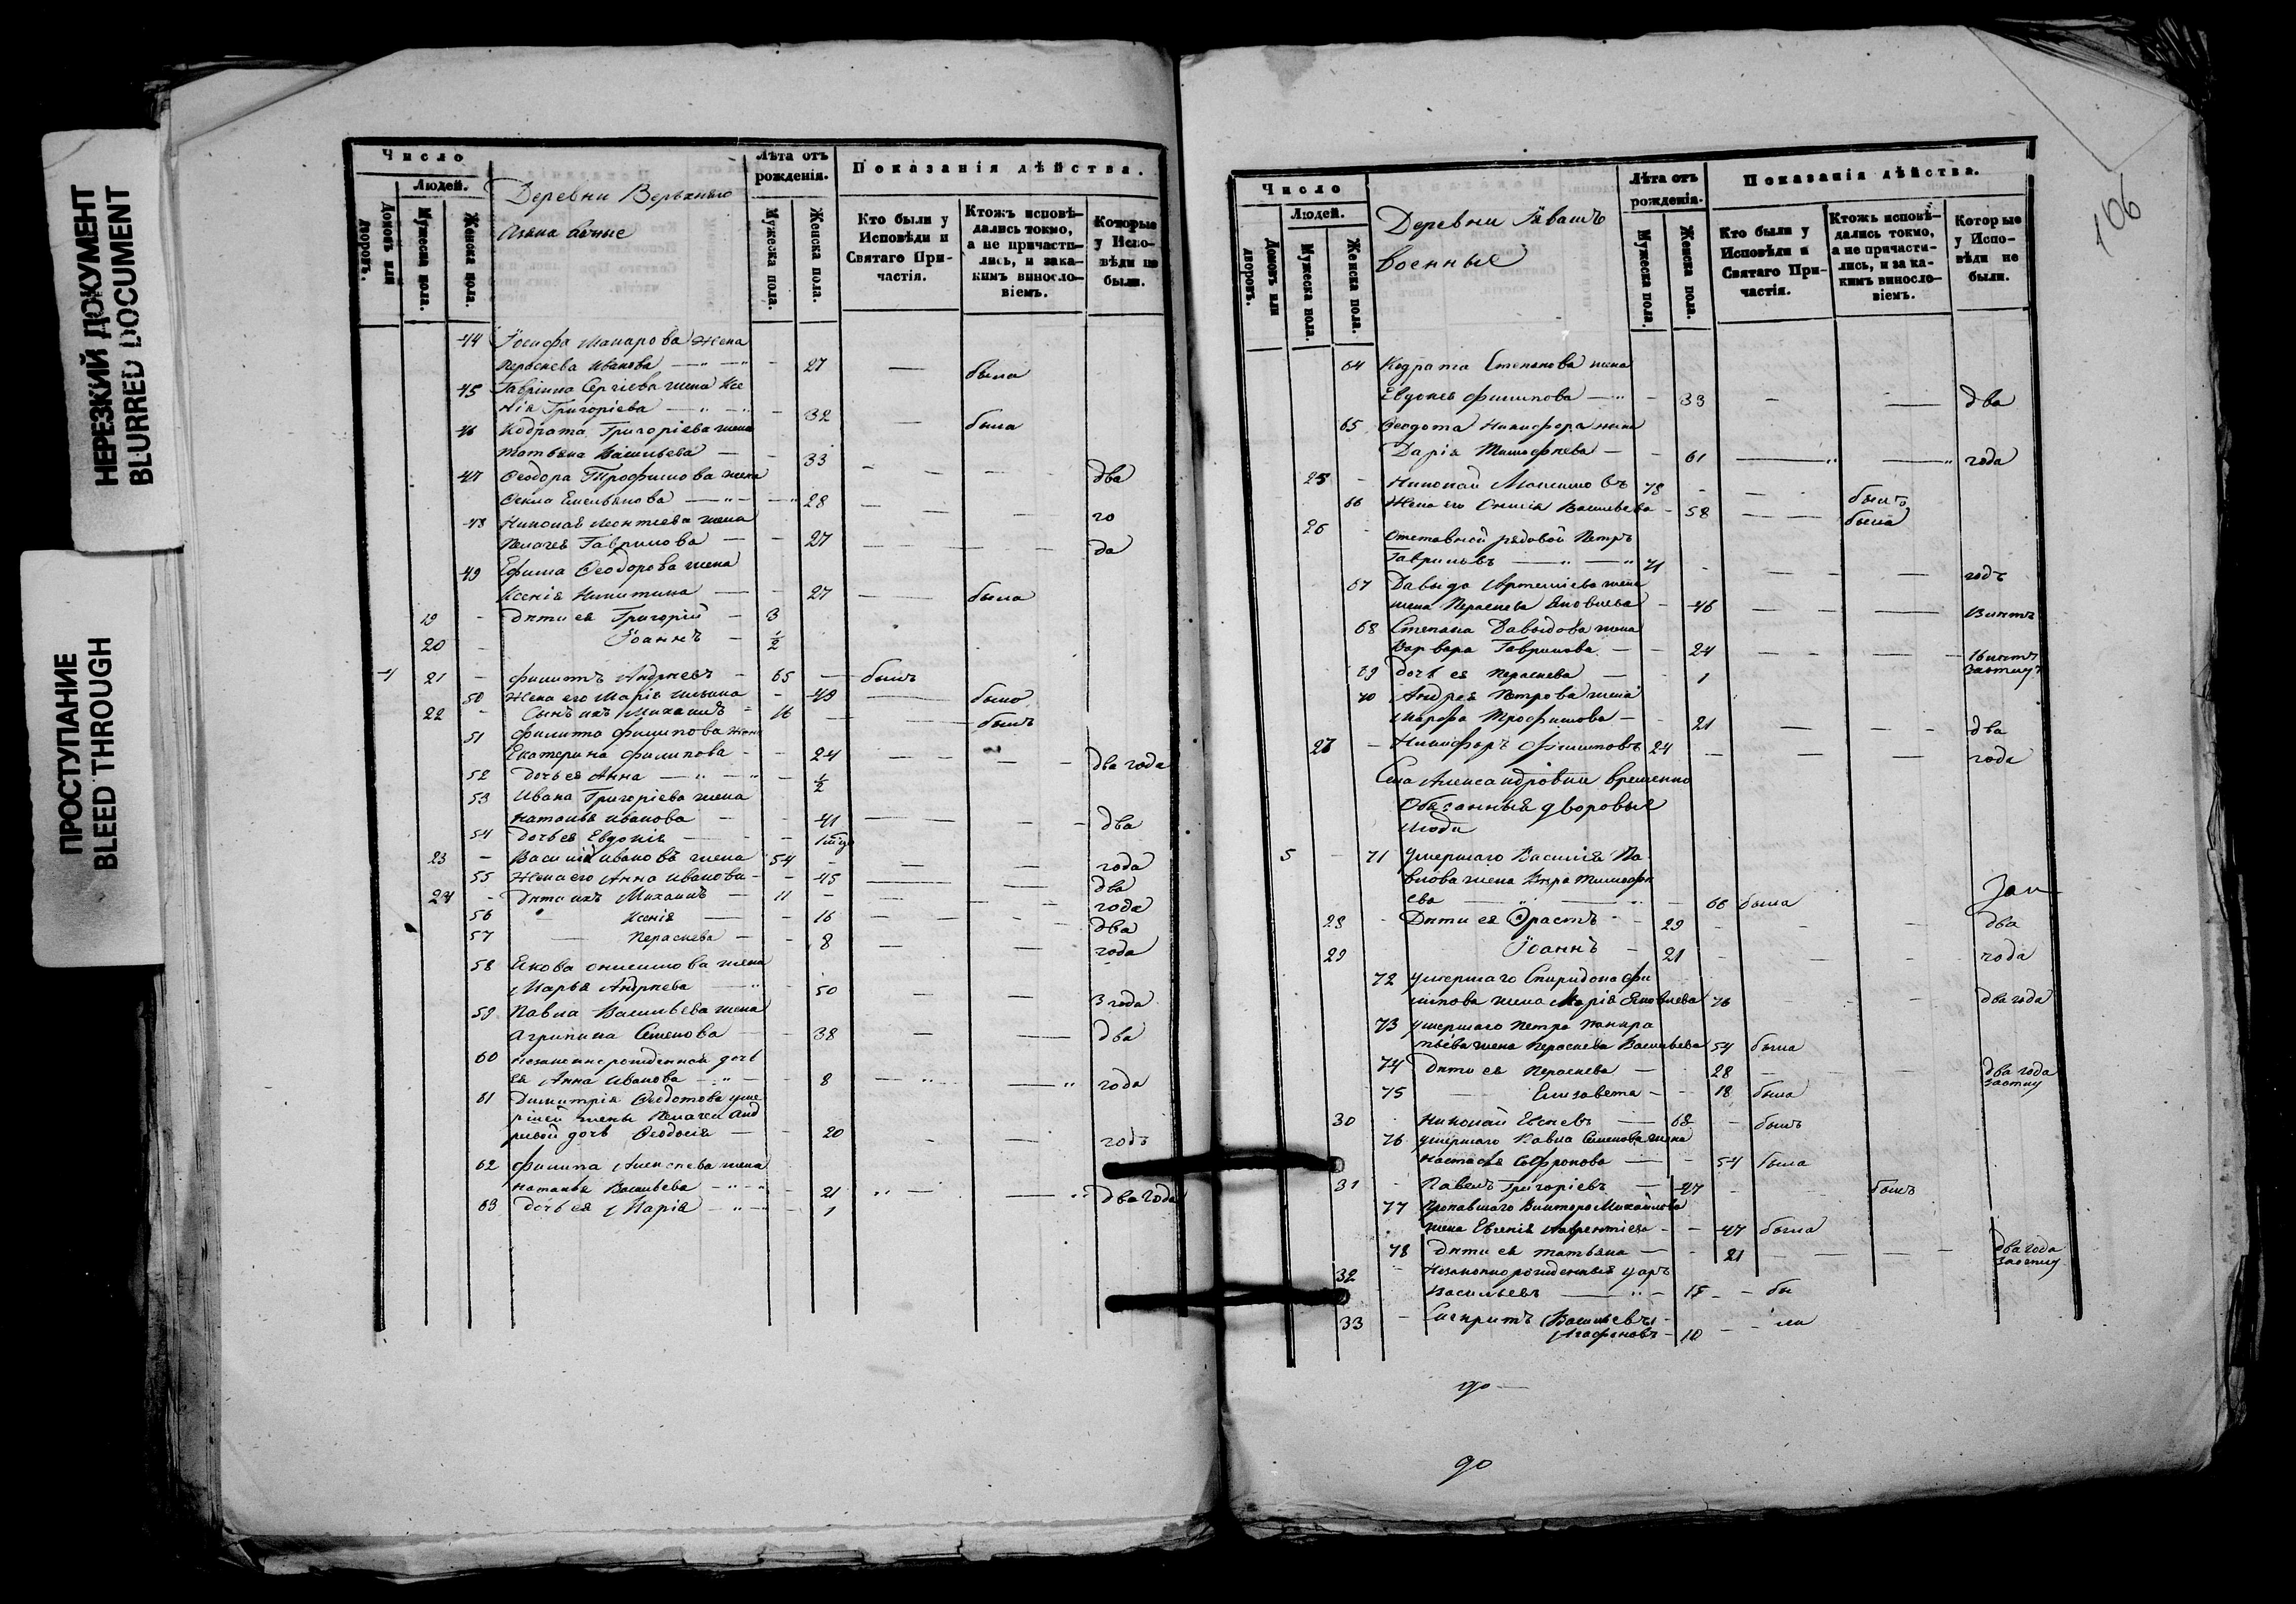 НЕРЕЗКИЙ ДОКУМЕНТ
BLURRED DOCUMENT
ПРОСТУПАНИЕ
BLEED THROUGH
Число
Людей.
Домовъ или дворовъ.
Мужеска пола.
Женска пола.
Деревни Верхняго
Лѣта отъ рожденія.
Мужеска пола.
Женска пола.
Показанія дѣйства.
Кто были у Исповѣди и Святаго Причастія.
Ктожъ исповѣдались токмо, а не причастились, и за каким винословіемъ.
Которые у Исповѣди не были.
44 Іосифа Макарова жена
Параскева Иванова 27 была
45 Гавріила Сергіева жена Ксе
нія Григоріева 32 была
46 Кодрата Григоріева жена
Татьяна Васильева 33
47 Ѳеодора Трофимова жена два
Ѳекла Емельянова 28
48 Николая Леонтіева жена го
Пелагея Гаврилова 27 да
49 Ефима Ѳеодорова жена
Ксенія Никитина 27 была
19 Дѣти ея Григорій 3
20 Іоаннъ ½
4 21 Филиппъ Андреевъ 65 былъ
50 Жена его Марія Ильина 49 была
22 Сынъ ихъ Михаилъ 16 былъ
51 Филипа Филипова жена
Екатерина Филипова 24 два года
52 Дочь ея Анна ½
53 Ивана Григоріева жена
Наталья Иванова 41 два
54 Дочь ея Евдокія
23 Василій Ивановъ жена 54 года
55 Жена его Анна Иванова 45 два
24 Дѣти ихъ Михаилъ 11 года
56 Ксенія 16 два
57 Параскева 8 года
58 Якова Онисимова жена
Марья Андреева 50 3 года
59 Павла Васильева жена
Агрипина Семенова 38 два
60 Незаконнорожденная дочь
ея Анна Иванова 8 года
61 Димитрія Ѳеодотова уме
ршей жены Пелагеи Анд
реевой дочь Ѳеодосія 20 годъ
62 Филипа Алексѣева жена
Наталья Васильева 21 два года
63 Дочь ея Марія 1
106
Число
Людей.
Домовъ или дворовъ.
Мужеска пола.
Женска пола.
Деревни Ивашъ
военные
Лѣта отъ рожденія.
Мужеска пола.
Женска пола.
Показанія дѣйства.
Кто были у Исповѣди и Святаго Причастія.
Ктожъ исповѣдались токмо, а не причастились, и за каким винословіемъ.
Которые у Исповѣди не были.
64 Кодрата Степанова жена
Евдокія Филипова 33 два
65 Ѳеодота Никифора жена
Дарія Тимофеева 61 года
25 Николай Максимовъ 78 былъ
66 Жена его Онисія Васильева 58 была
26 Отставной рядовой Петръ
Гавриловъ 71 годъ
67 Давыда Артеміева жена
жена Параскева Яковлева 46 13 лѣтъ
68 Степана Давыдова жена
Варвара Гаврилова 24
69 Дочь ея Параскева 1
70 Андрея Петрова жена
Марфа Трофимова 21 два
27 Никифоръ Филиповъ 24 года
Села Александровки временно
Обязанныя дворовые
люди
5 71 Умершаго Василія Па
влова жена Тимофе
ева 66 была
28 Дѣти ея Эрастъ 29 два
29 Іоаннъ 21 года
72 Умершаго Спиридона Фи
липова жена Марія Яковлева 76 два года
73 Умершаго Петра Панкра
тьева жена Параскева Васильева 54 была
74 Дѣти ея Параскева 28 два года
75 Елизавета 18 была
30 Николай Евсеевъ 68 былъ
76 Умершаго Павла Семенова жена
Настасья Софронова 54 была
31 Павелъ Григоріевъ 47 былъ
77 Пропавшаго Виктора Михайлова
жена Евгенія Лаврентіева 47 была
78 Дѣти ея Татьяна 21 два года
32 Незаконнорожденныя
Васильевъ 15 бы
33 Васильевъ ли
Агафоновъ 10
до
до